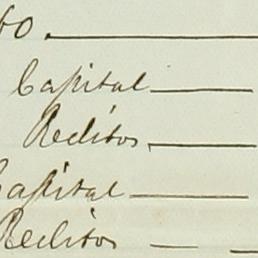 Capital
Reditos
Capital
Reditos